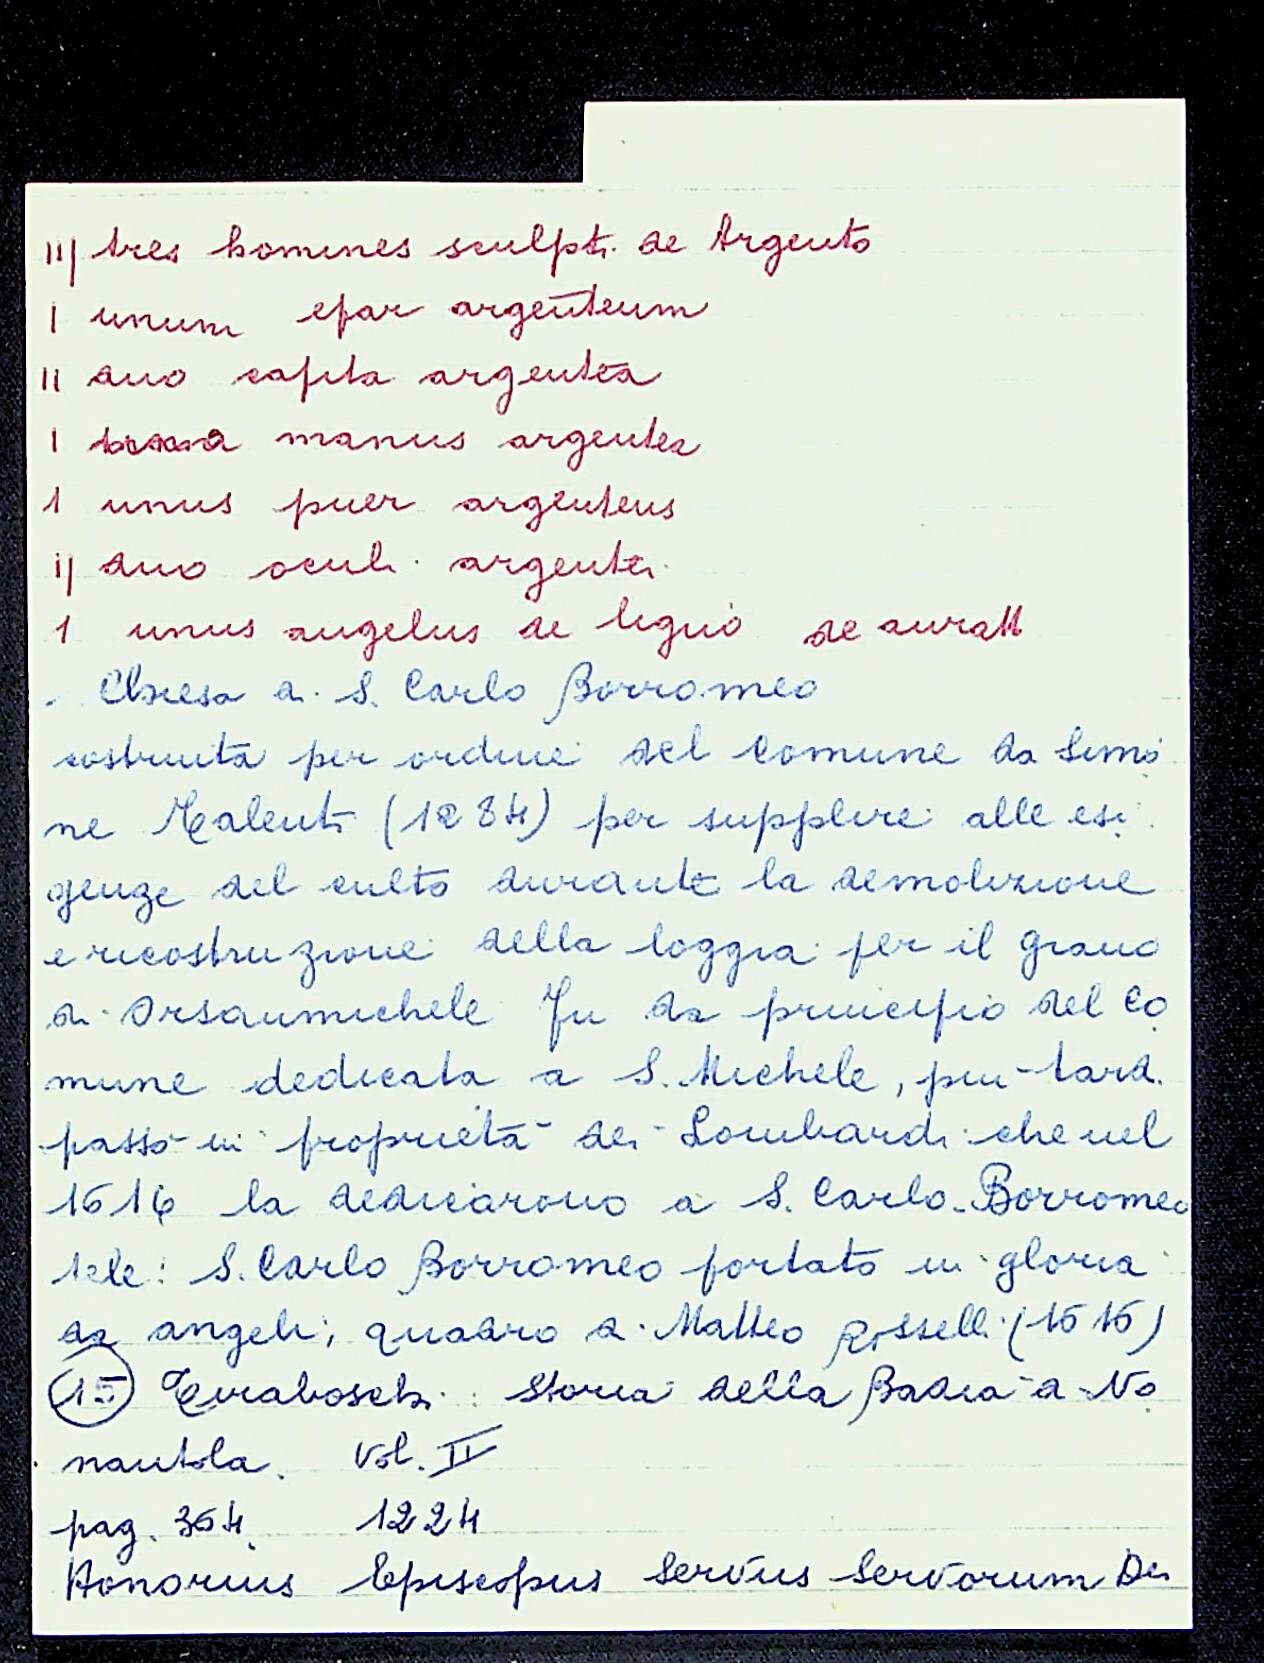 iij tres homines sculpti de Argento
I unum epar argenteum
II duo capita argentea
I manus argentea
1 unus puer argenteus
ij duo oculi argentei
1 unus angelus de ligno de aurati
Chiesa di S. Carlo Borromeo
costruita per ordine del Comune da Simo
ne Talenti (1284) per supplire alle esi
genze del culto durante la demolizione
e ricostruzione della loggia per il grano
di Orsanmichele Fu da principio del Co
mune dedicata a S. Michele, piu tardi
passò in proprietà dei Lombardi che nel
1616 la dedicarono a S. Carlo Borromeo
tele: S. Carlo Borromeo portato in gloria
da angeli, quadro di Matteo Rosselli (1616)
15 Tiraboschi: Storia della Badia di No
nantola. Vol. II
pag. 354 1224
Honorius Episcopus Servus Servorum Dei